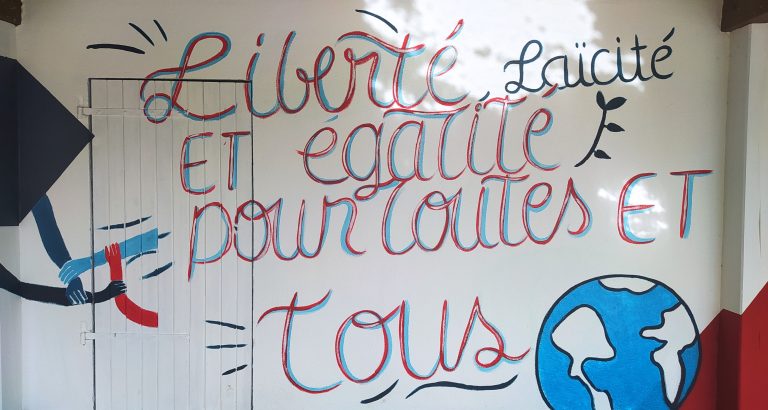 Liberté, Laïcité
ET égalité
pour toutes ET
tous